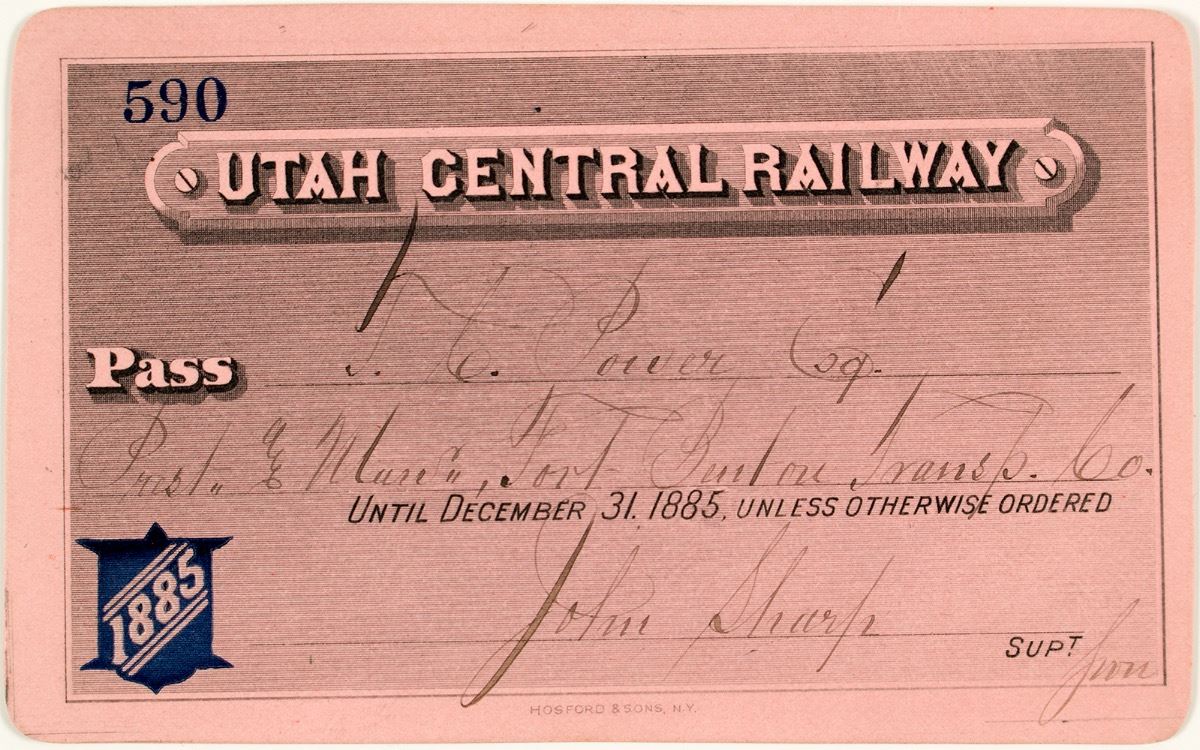 590
UTAH CENTRAL RAILWAY
Pass T. C. Power Esq.
Prest. & Man'r, Fort Benton Transp. Co.
UNTIL DECEMBER 31. 1885, UNLESS OTHERWISE ORDERED
1885
John Sharp
SUPT
HOSFORD & SONS, N.Y.